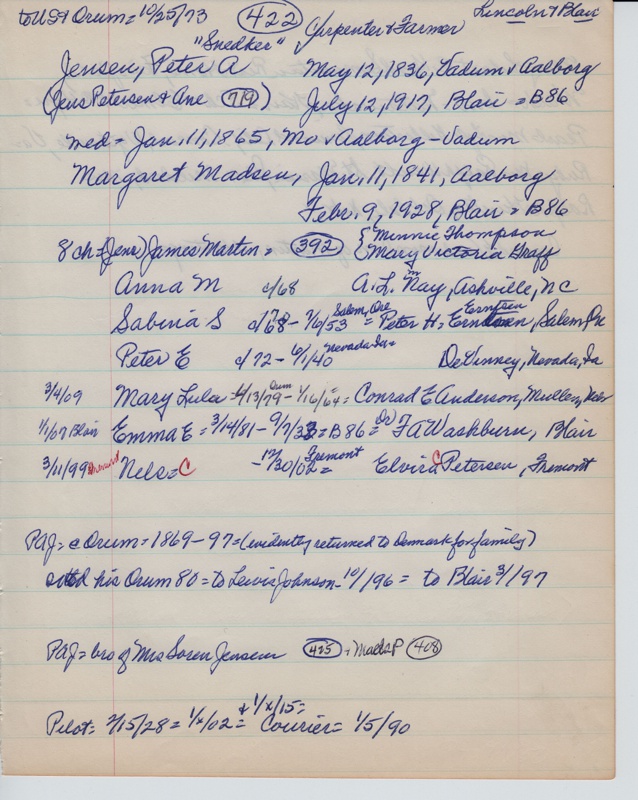 to US & Orum = 10/25/73 (422) Lincoln & Blair
"Snedker" Carpenter & Farmer
Jensen, Peter A May 12, 1836, Vadum v Aalborg
(Jens Petersen & Ane (719)) July 12, 1917, Blair = B86
med = Jan. 11, 1865, Mo v Aalborg - Vadum
Margaret Madsen, Jan. 11, 1841, Aalborg
Febr. 9, 1928, Blair = B86
8 ch = (Jens) James Martin = (392) { Minnie Thompson
Mary Victoria Graff
Anna M c/68 A. L. May, Ashville, NC
Sabina S - 7/6/53 Salem, Ore = Peter H. Erntsen, Salem, Ore
Peter E c/72 - 6/1/40 Nevada, Ia = DeVinney, Nevada, Ia
3/4/09 Mary Lula - 4/13/79 Orum - 1/16/64 = Conrad E Anderson, Mullen, Neb
1/1/07 Blair Emma E = 3/14/81 - 9/7/33 = B86 = (Dr) F A Washburn, Blair
3/11/99 Nels = C - 12/30/02 = Fremont Elvira C Petersen, Fremont
PAJ = c Orum = 1869 - 97 = (evidently returned to Denmark for family)
sold his Orum 80 = to Lewis Johnson - 10/1/96 = to Blair 3/1/97
PAJ = bro of Mrs Soren Jensen (425) + Mads P (408)
Pilot = 2/15/28 = 1/x/02 = & 1/x/15 = Courier = 1/5/90